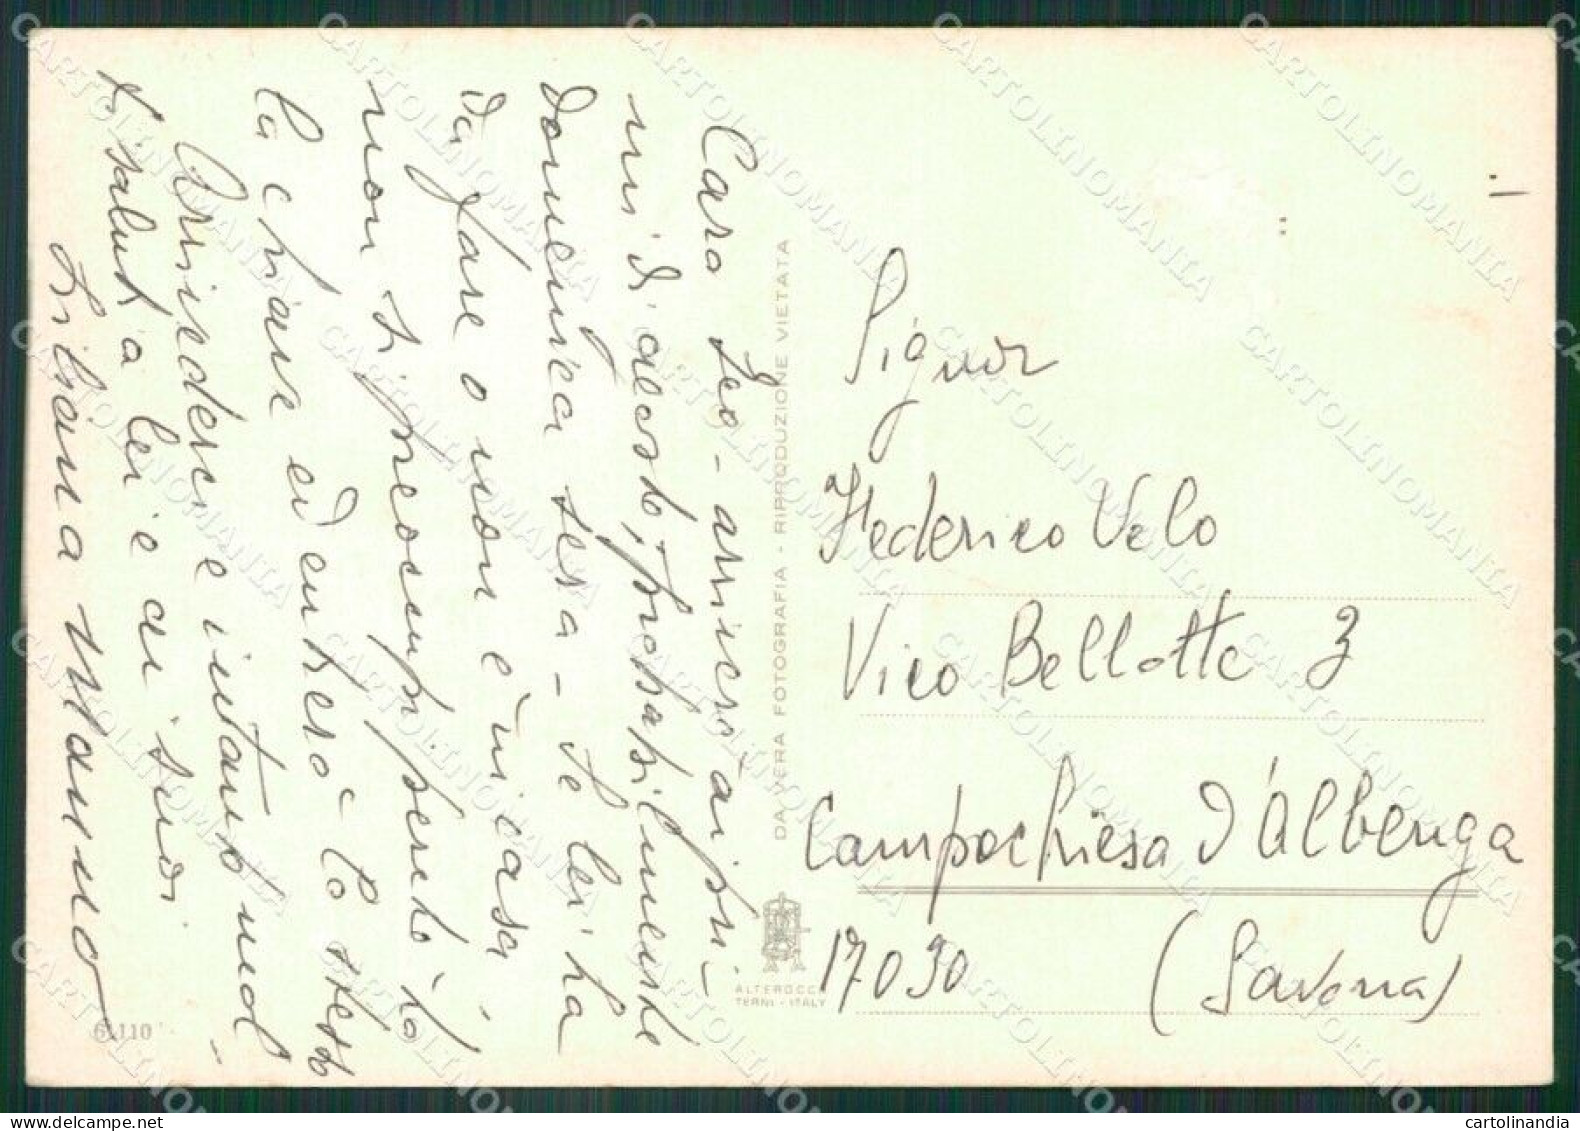 Caro Leo - arriverò ai pri-
mi di agosto, probabilmente
domenica sera - Se lei ha
da fare o non è in casa,
non si preoccupi perché ho
la chiave ed entrerò lo stesso
Arrivederci e intanto molti
saluti a lei e ai suoi
Liliana Manno
61110
DA VERA FOTOGRAFIA - RIPRODUZIONE VIETATA
ALTEROCCA
TERNI - ITALY
Signor
Federico Velo
Vico Bellotte 3
Campochiesa d'Albenga
17030 (Savona)
CARTOLINOMANIA
cartolinandia